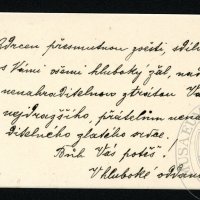 Zdrcen přesmutnou zvěstí, sdílí
s Vámi všemi hluboký žal, nad
nenahraditelnou ztrátou Va
nejdražšího, přátelům nena
ditelného zlatého srdce.
Bůh Vás potěš!
V hluboké oddano